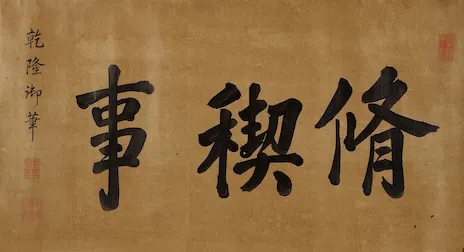 脩稧事
乾隆御筆